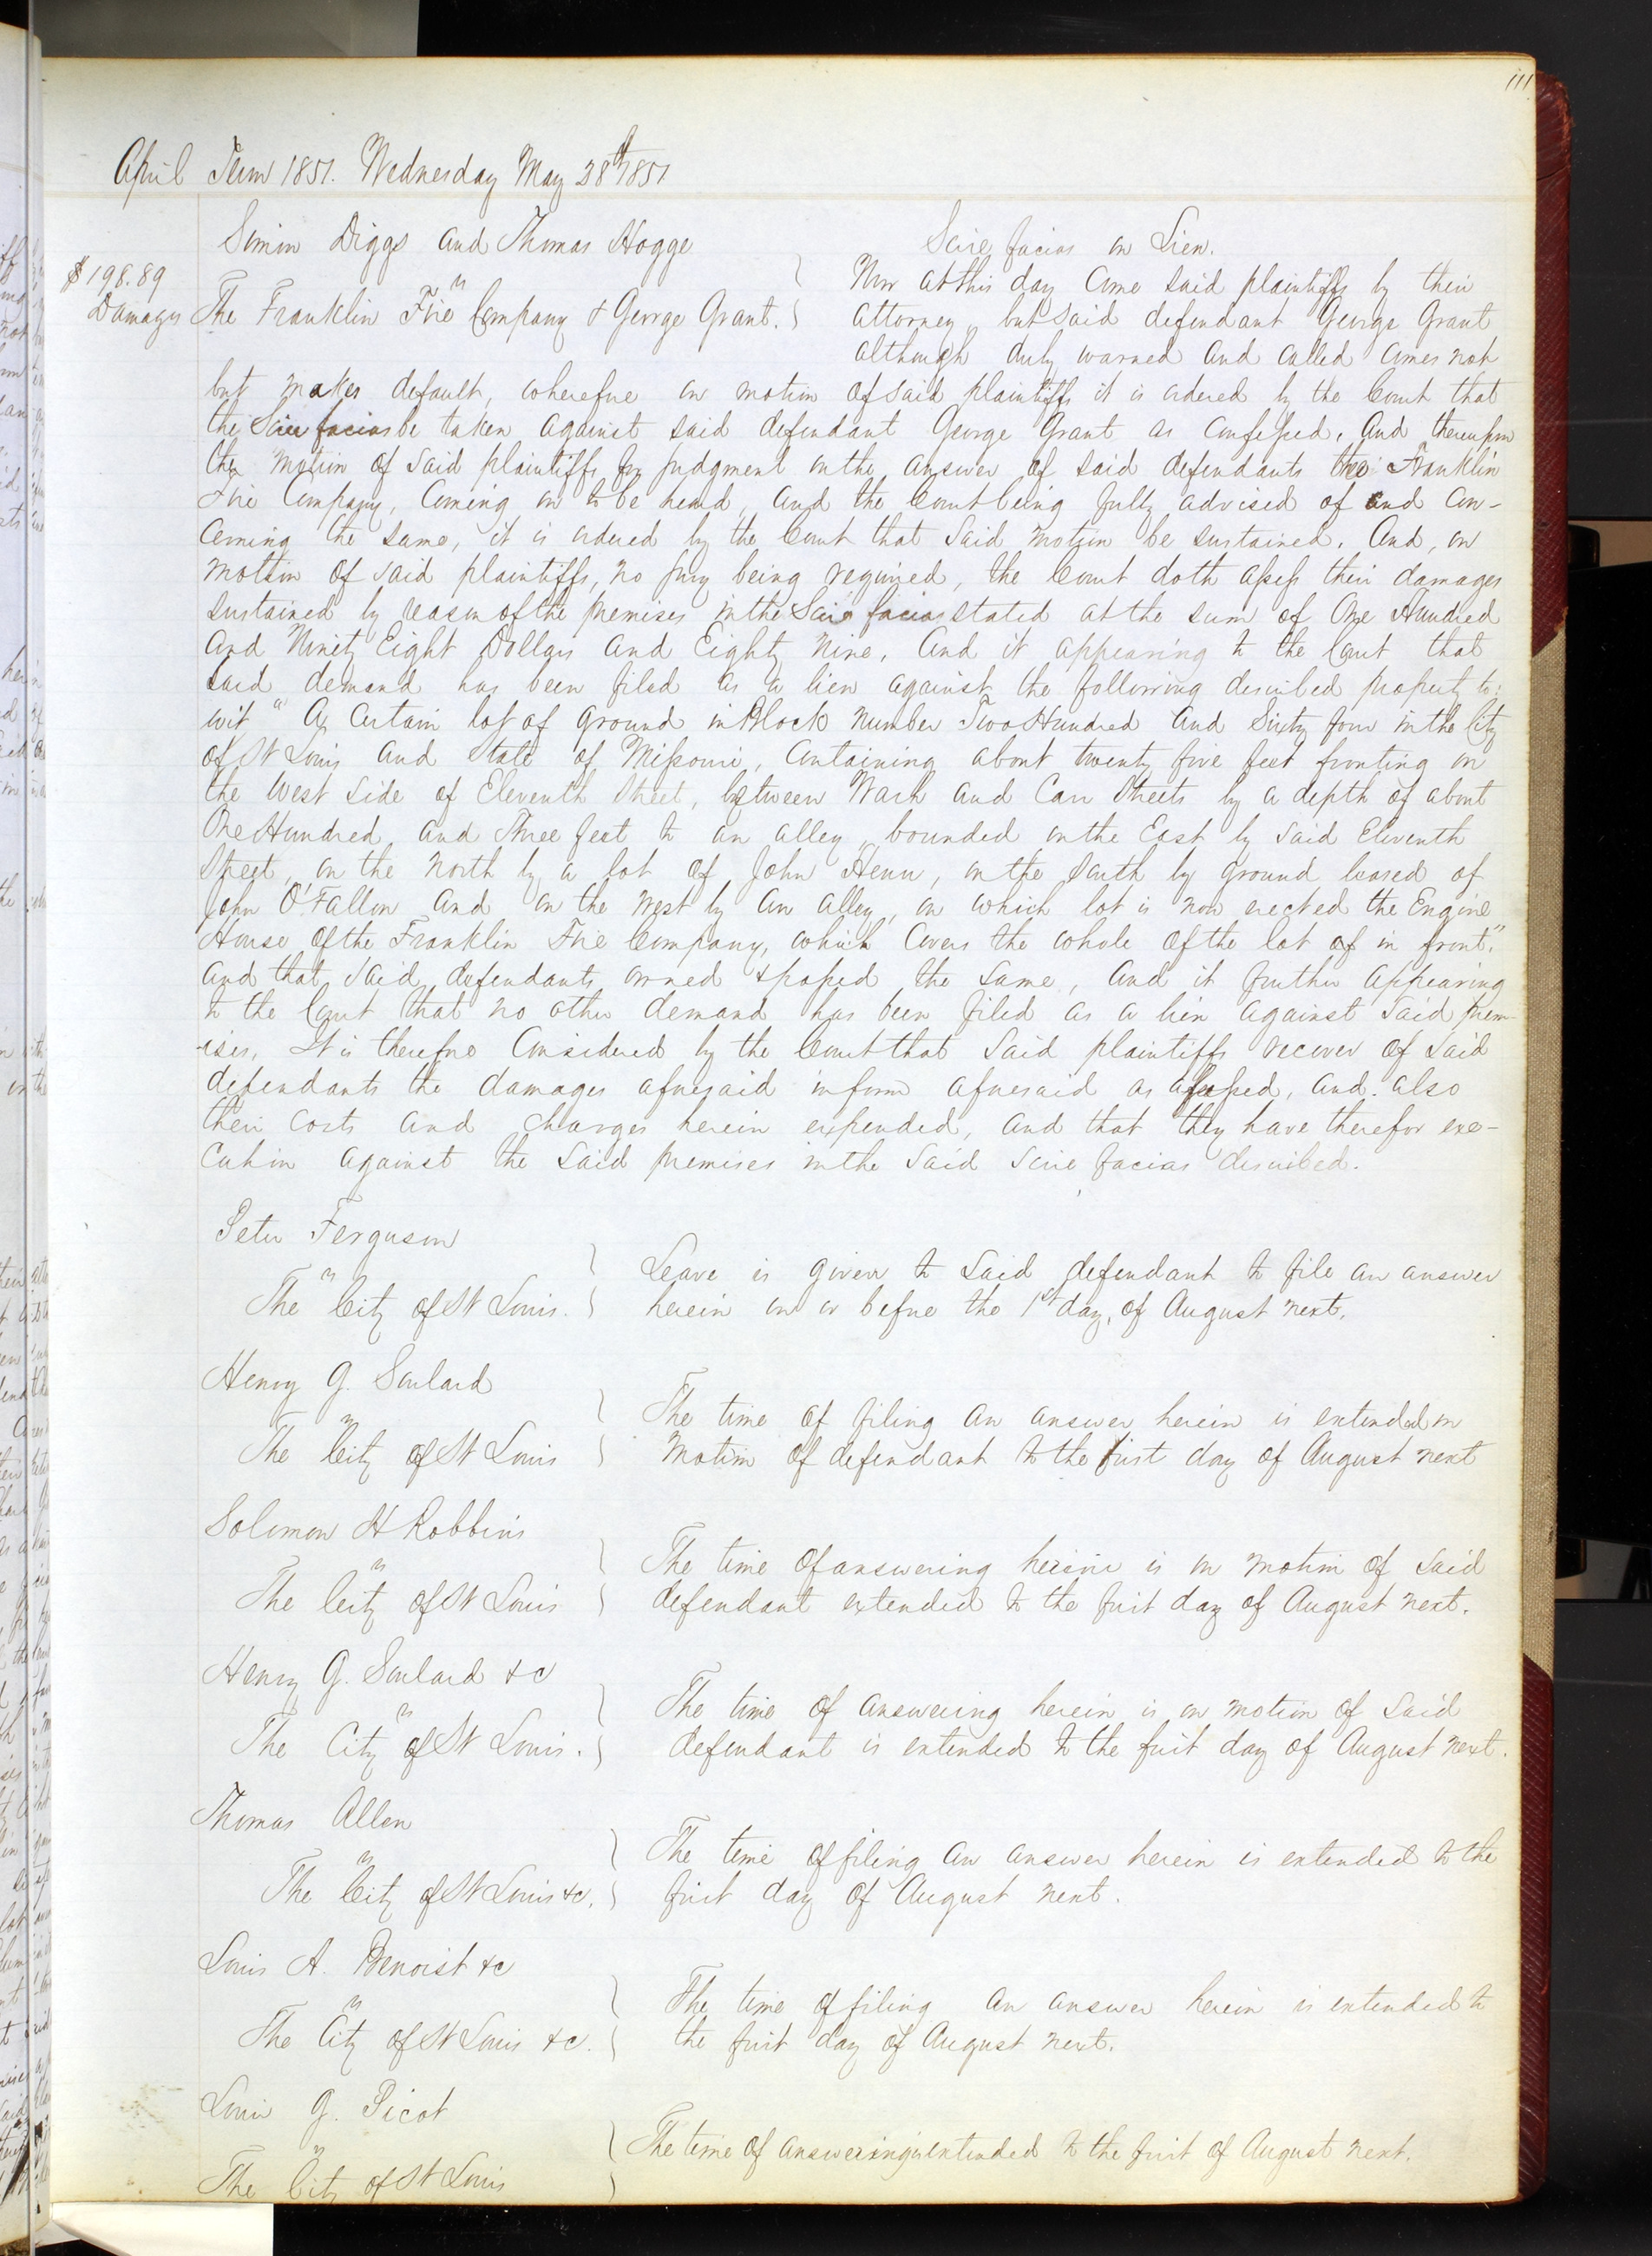 111
April Term 1851. Wednesday May 28th 1851
Simon Diggs and Thomas Hogge
Scire facias on Lien.
$198.89
Damages
vs
The Franklin Fire Company & George Grant.
Now at this day come said plaintiffs by their
attorney, but said defendant George Grant
although duly warned and called comes not
but makes default, wherefore on motion of said plaintiffs it is ordered by the Court that
the Scire facias be taken against said defendant George Grant as confessed. And thereupon
the motion of said plaintiffs for judgment on the answer of said defendants the Franklin
Fire Company, coming on to be heard, and the Court being fully advised of and con-
cerning the same, it is ordered by the Court that said motion be sustained. And, on
motion of said plaintiffs, no jury being required, the Court doth assess their damages
sustained by reason of the premises in the Scire facias stated at the sum of One Hundred
and Ninety Eight Dollars and Eighty Nine. And it appearing to the Court that
said demand has been filed as a lien against the following described property to:
wit "A certain lot of ground in Block number Two Hundred and Sixty four in the City
of St Louis and State of Missouri, containing about twenty five feet fronting on
the West side of Eleventh Street, between Wash and Carr Streets by a depth of about
One Hundred and Three feet to an alley, bounded on the East by said Eleventh
Street, on the North by a lot of John Henn, on the South by ground leased of
John O'Fallon and on the West by an alley, on which lot is now erected the Engine
House of the Franklin Fire Company, which covers the whole of the lot of in front."
and that said defendants owned & possed the same, and it further appearing
to the Court that no other demand has been filed as a lien against said prem-
-ises. It is therefore considered by the Court that said plaintiffs recover of said
defendants the damages aforesaid in form aforesaid as assessed, and also
their costs and charges herein expended, and that they have therefor exe-
cution against the said premises in the said scire facias described.
Peter Ferguson
vs
The City of St Louis.
Leave is given to said defendant to file an answer
herein on or before the 1st day of August next.
Henry G. Soulard
vs
The City of St Louis
The time of filing an answer herein is extended on
motion of defendant to the first day of August next
Solomon H Robbins
vs
The City of St Louis
The time of answering herein is on motion of said
defendant extended to the first day of August next.
Henry G. Soulard &c
vs
The City of St Louis.
The time of answering herein is on motion of said
defendant is extended to the first day of August next.
Thomas Allen
vs
The City of St Louis &c.
The time of filing an answer herein is extended to the
first day of August next.
Louis A. Benoist &c
vs
The City of St Louis &c.
The time of filing an answer herein is extended to
the first day of August next.
Louis G. Picot
vs
The City of St Louis
The time of answering is extended to the first of August next.